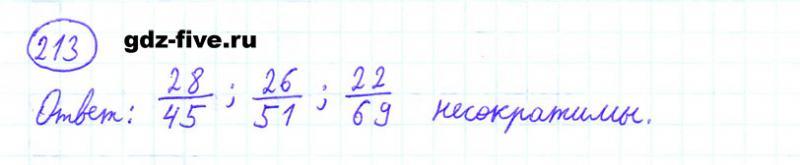 213 gdz-five.ru
Ответ: 28/45 ; 26/51 ; 22/69 несократимы.